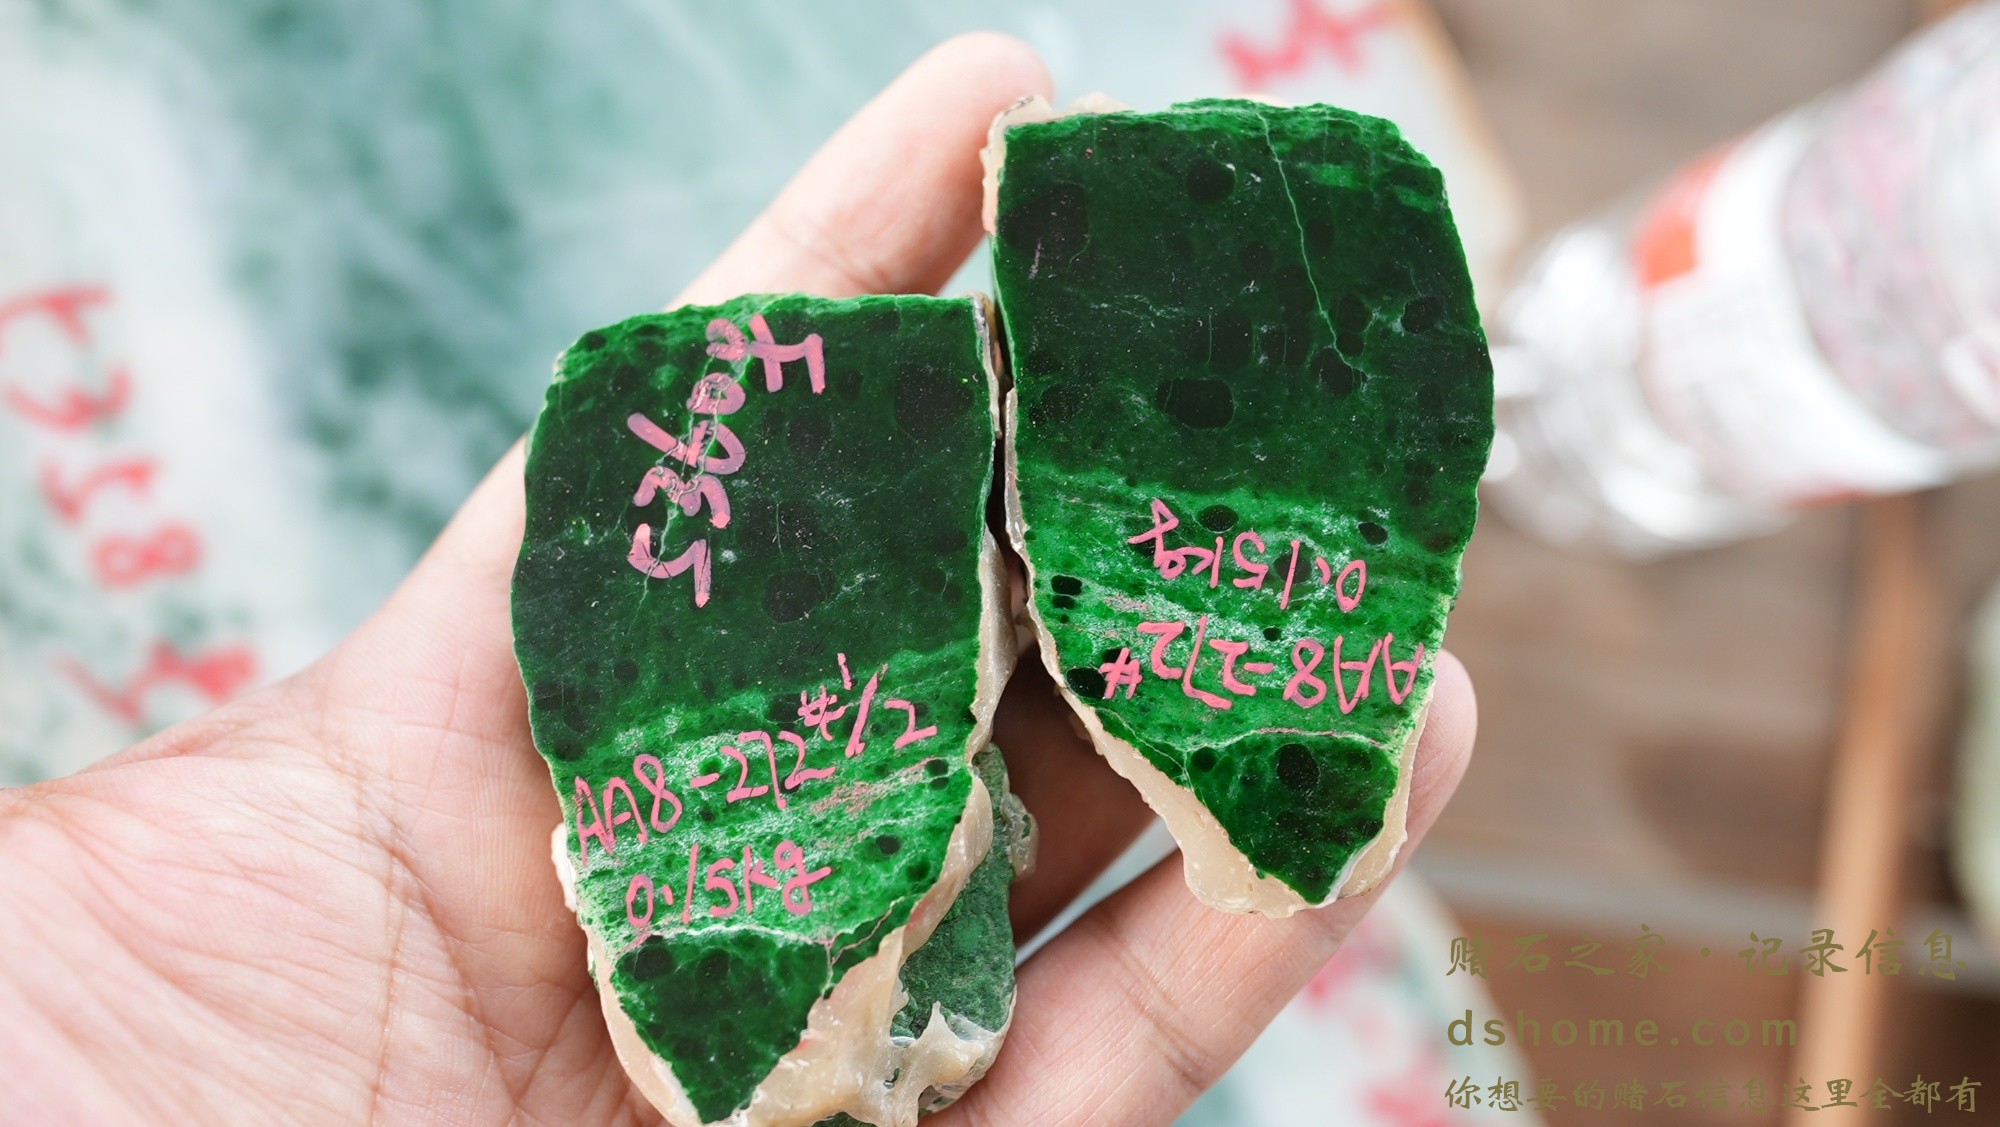 AA8-272#1/2
0.15kg
AA8-272#
0.15kg
赌石之家·记录信息
dshome.com
你想要的赌石信息这里全都有